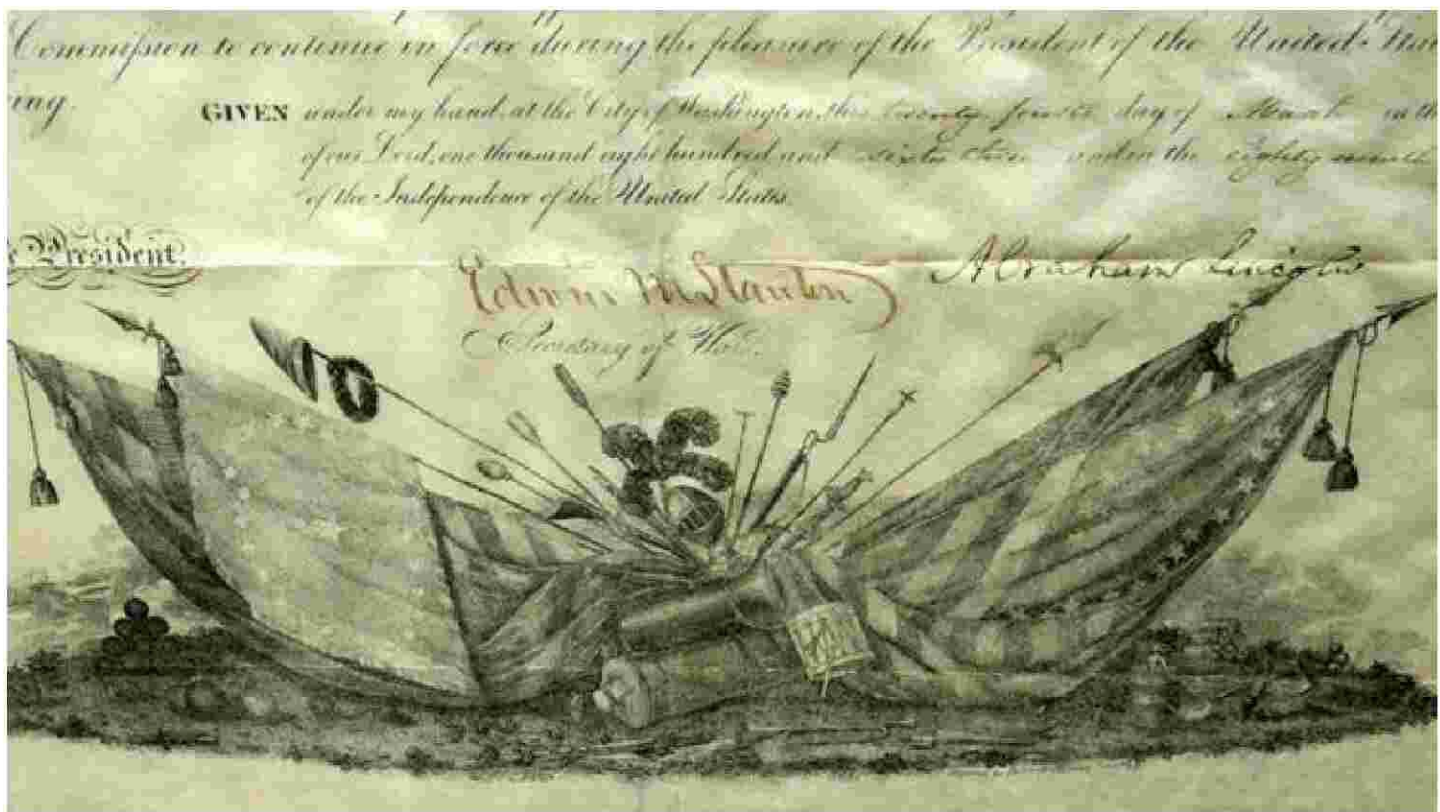 Commission to continue in force during the pleasure of the President of the United States
ing.
GIVEN under my hand, at the City of Washington, this twenty fourth day of March in th
of our Lord, one thousand eight hundred and sixty three and in the eighty
of the Independence of the United States.
e President,
Edwin M Stanton
Abraham Lincoln
Secretary of War.